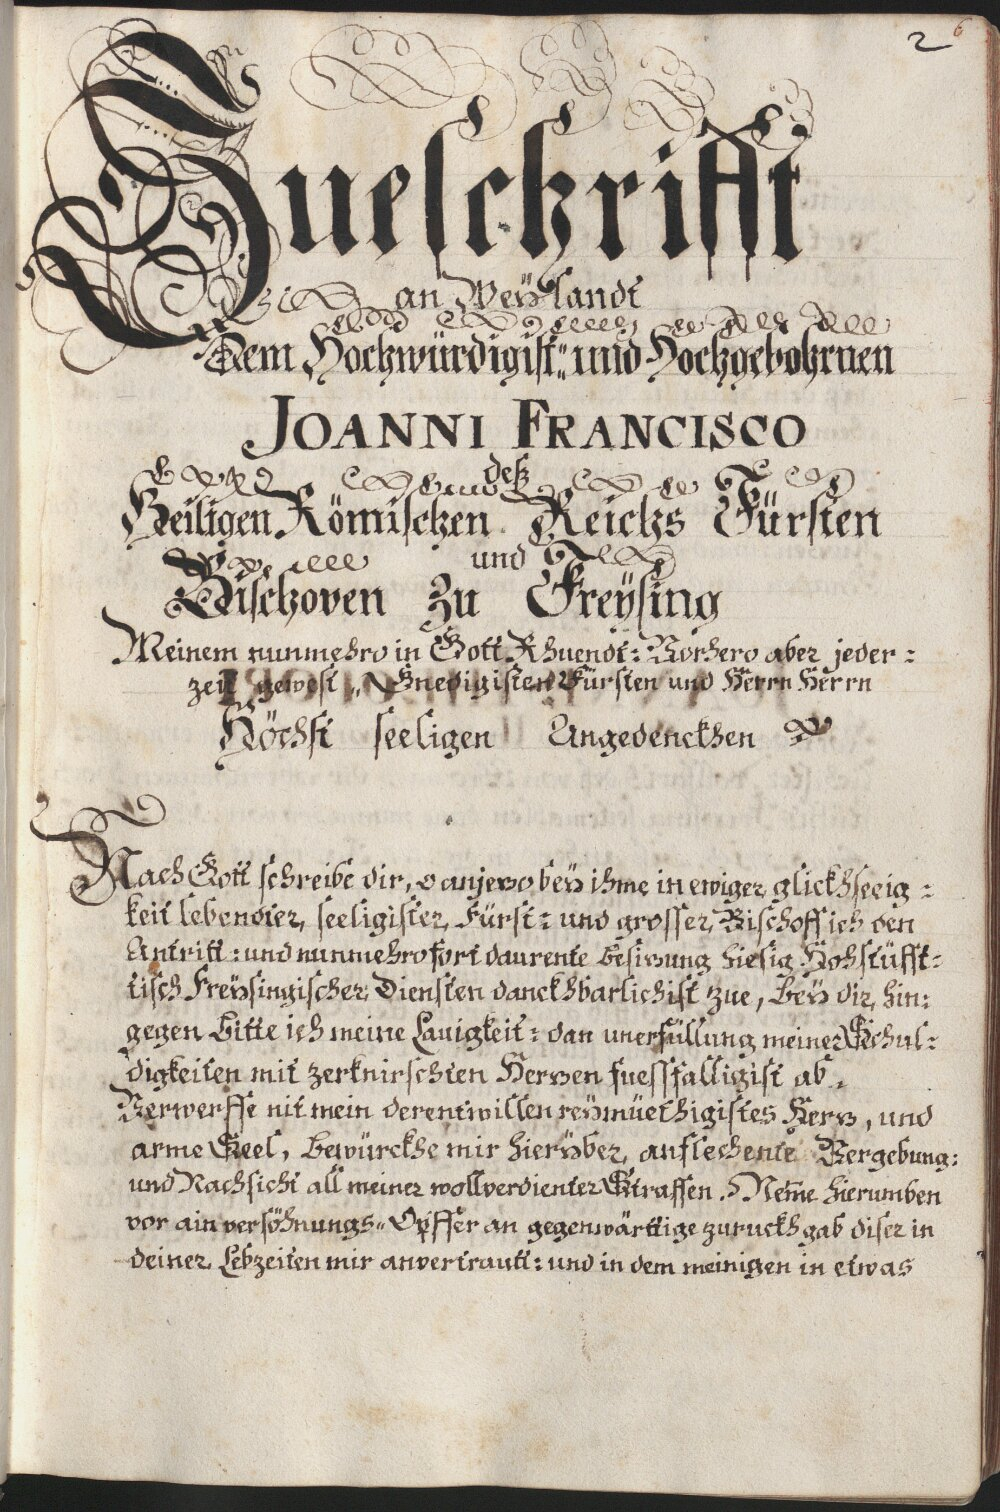 2
6
Zueschrifft
an Weÿlandt
Dem Hochwürdigist„ und Hochgebohrnen
JOANNI FRANCISCO
deß
Heiligen Römischen Reichs Fürsten
und
Bischoven Zu Freÿsing
Meinem nunmehro in Gott Rhuendt: Vorhero aber jeder:
zeit gewest„ Gnedigisten Fürsten und Herrn Herrn
Höchst seeligen Angedenckhen
Nach Gott schreibe dir, o anjezo beÿ ihme in ewiger glickhseeig:
keit lebendter, seeligister Fürst: und grosser Bischoff ich den
Antritt: und nunmehro fort daurente besizung hiesig Hohstüfft:
tisch Freÿsingischer Diensten danckhbarlichist zue, beÿ dir hin:
gegen bitte ich meine Lauigkeit: dan unerfüllung meiner Schul:
digkeiten mit zerknirschten Herzen fuessfalligist ab.
Verwerffe nit mein derentwillen reÿmüethigistes Herz, und
arme Seel, bewürckhe mir hierÿber anflechente Vergebung:
und Nachsicht all meiner wollverdienter Straffen. Neme hierumben
vor ain versöhnungs„ Opffer an gegenwärttige zuruckhgab diser in
deiner Lebzeiten mir anvertrautt: und in dem meinigen in etwas